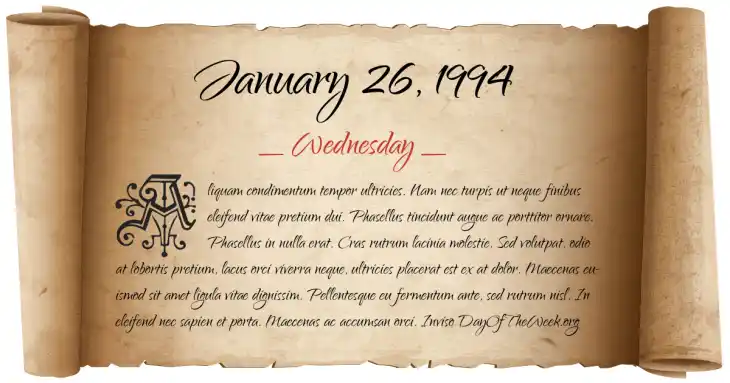 January 26, 1994
_ Wednesday _
Aliquam condimentum tempor ultricies. Nam nec turpis ut neque finibus
eleifend vitae pretium dui. Phasellus tincidunt augue ac porttitor ornare.
Phasellus in nulla erat. Cras rutrum lacinia molestie. Sed volutpat, odio
at lobortis pretium, lacus orci viverra neque, ultricies placerat est ex at dolor. Maecenas eu-
ismod sit amet ligula vitae dignissim. Pellentesque eu fermentum ante, sed rutrum nisl. In
eleifend nec sapien et porta. Maecenas ac accumsan orci. Inviso DayOfTheWeek.org